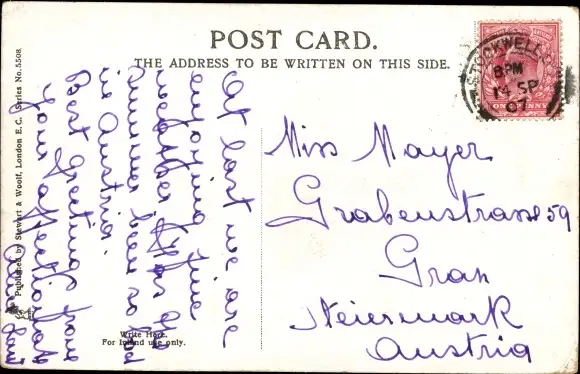 POST CARD.
THE ADDRESS TO BE WRITTEN ON THIS SIDE.
STOCKWELL
8 PM
14 SP
07
ONE PENNY
Miss Mayer
Grabenstrasse 59
Graz
Steiermark
Austria
At last we are
enjoying fine
weather. Has the
summer been so bad
in Austria.
Best greetings from
Your affectionate
Write Here.
For Inland use only.
Published by Stewart & Woolf, London E.C. (Series No. 5508